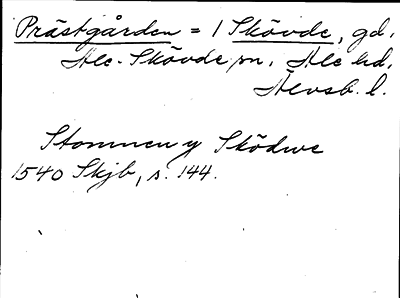 Prästgården = 1 Skövde, gd.
Ale-Skövde sn, Ale hd.
Älvsb. l.
Stommen y Sködwe
1540 Skjb, s. 144.